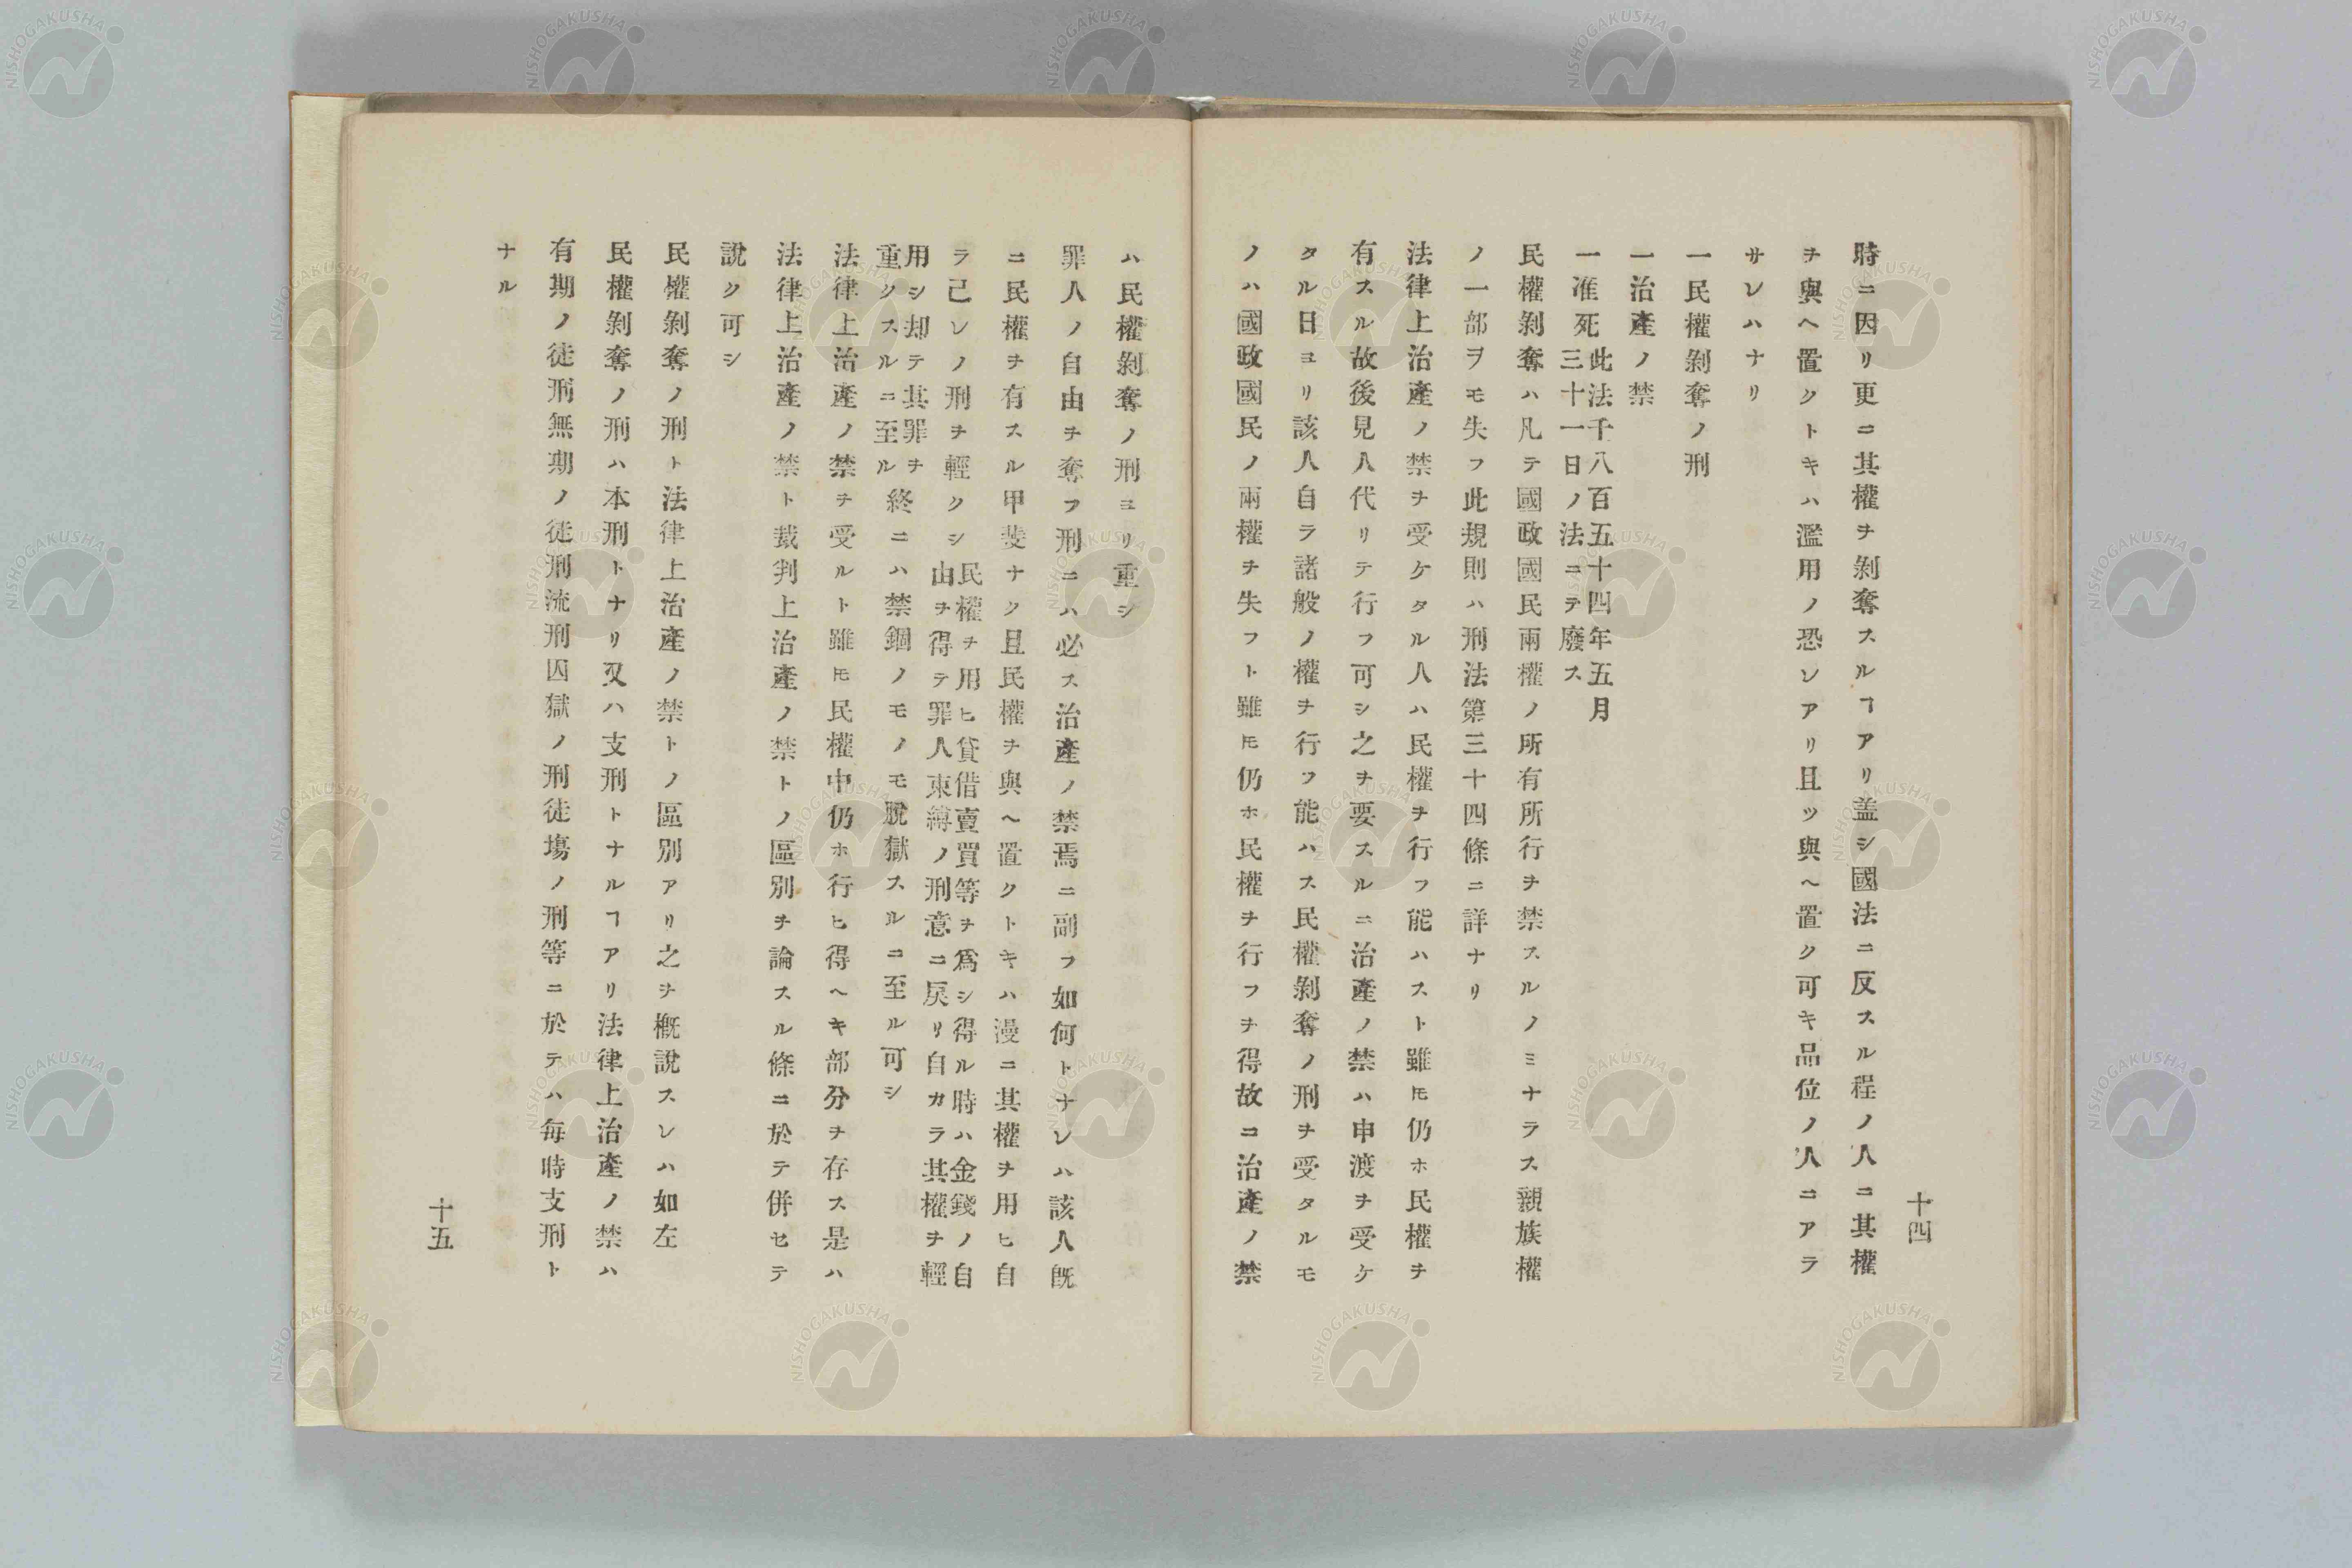 十四
時ニ因リ更ニ其權ヲ剝奪スルヿアリ盖シ國法ニ反スル程ノ人ニ其權
ヲ與ヘ置クトキハ濫用ノ恐レアリ且ツ與ヘ置ク可キ品位ノ人ニアラ
サレハナリ
一民權剝奪ノ刑
一治產ノ禁
一准死此法千八百五十四年五月
三十一日ノ法ニテ廢ス
民權剝奪ハ凡テ國政國民兩權ノ所有所行ヲ禁スルノミナラス親族權
ノ一部ヲモ失フ此規則ハ刑法第三十四條ニ詳ナリ
法律上治產ノ禁ヲ受ケタル人ハ民權ヲ行フ能ハスト雖𪜈仍ホ民權ヲ
有スル故後見人代リテ行フ可シ之ヲ要スルニ治產ノ禁ハ申渡ヲ受ケ
タル日ヨリ該人自ラ諸般ノ權ヲ行フ能ハス民權剝奪ノ刑ヲ受タルモ
ノハ國政國民ノ兩權ヲ失フト雖𪜈仍ホ民權ヲ行フヲ得故ニ治產ノ禁
ハ民權剝奪ノ刑ヨリ重シ
罪人ノ自由ヲ奪フ刑ニハ必ス治產ノ禁焉ニ副フ如何トナレハ該人既
ニ民權ヲ有スル甲斐ナク且民權ヲ與ヘ置クトキハ漫ニ其權ヲ用ヒ自
ラ己レノ刑ヲ輕クシ民權ヲ用ヒ貸借賣買等ヲ爲シ得ル時ハ金錢ノ自
由ヲ得テ罪人束縛ノ刑意ニ戾リ自カラ其權ヲ輕
用シ却テ其罪ヲ
重クスルニ至ル終ニハ禁錮ノモノモ脫獄スルニ至ル可シ
法律上治產ノ禁ヲ受ルト雖𪜈民權中仍ホ行ヒ得ヘキ部分ヲ存ス是ハ
法律上治產ノ禁ト裁判上治產ノ禁トノ區別ヲ論スル條ニ於テ併セテ
說ク可シ
民權剝奪ノ刑ト法律上治產ノ禁トノ區別アリ之ヲ槪說スレハ如左
民權剝奪ノ刑ハ本刑トナリ又ハ支刑トナルヿアリ法律上治產ノ禁ハ
有期ノ徒刑無期ノ徒刑流刑囚獄ノ刑徒塲ノ刑等ニ於テハ毎時支刑ト
ナル
十五